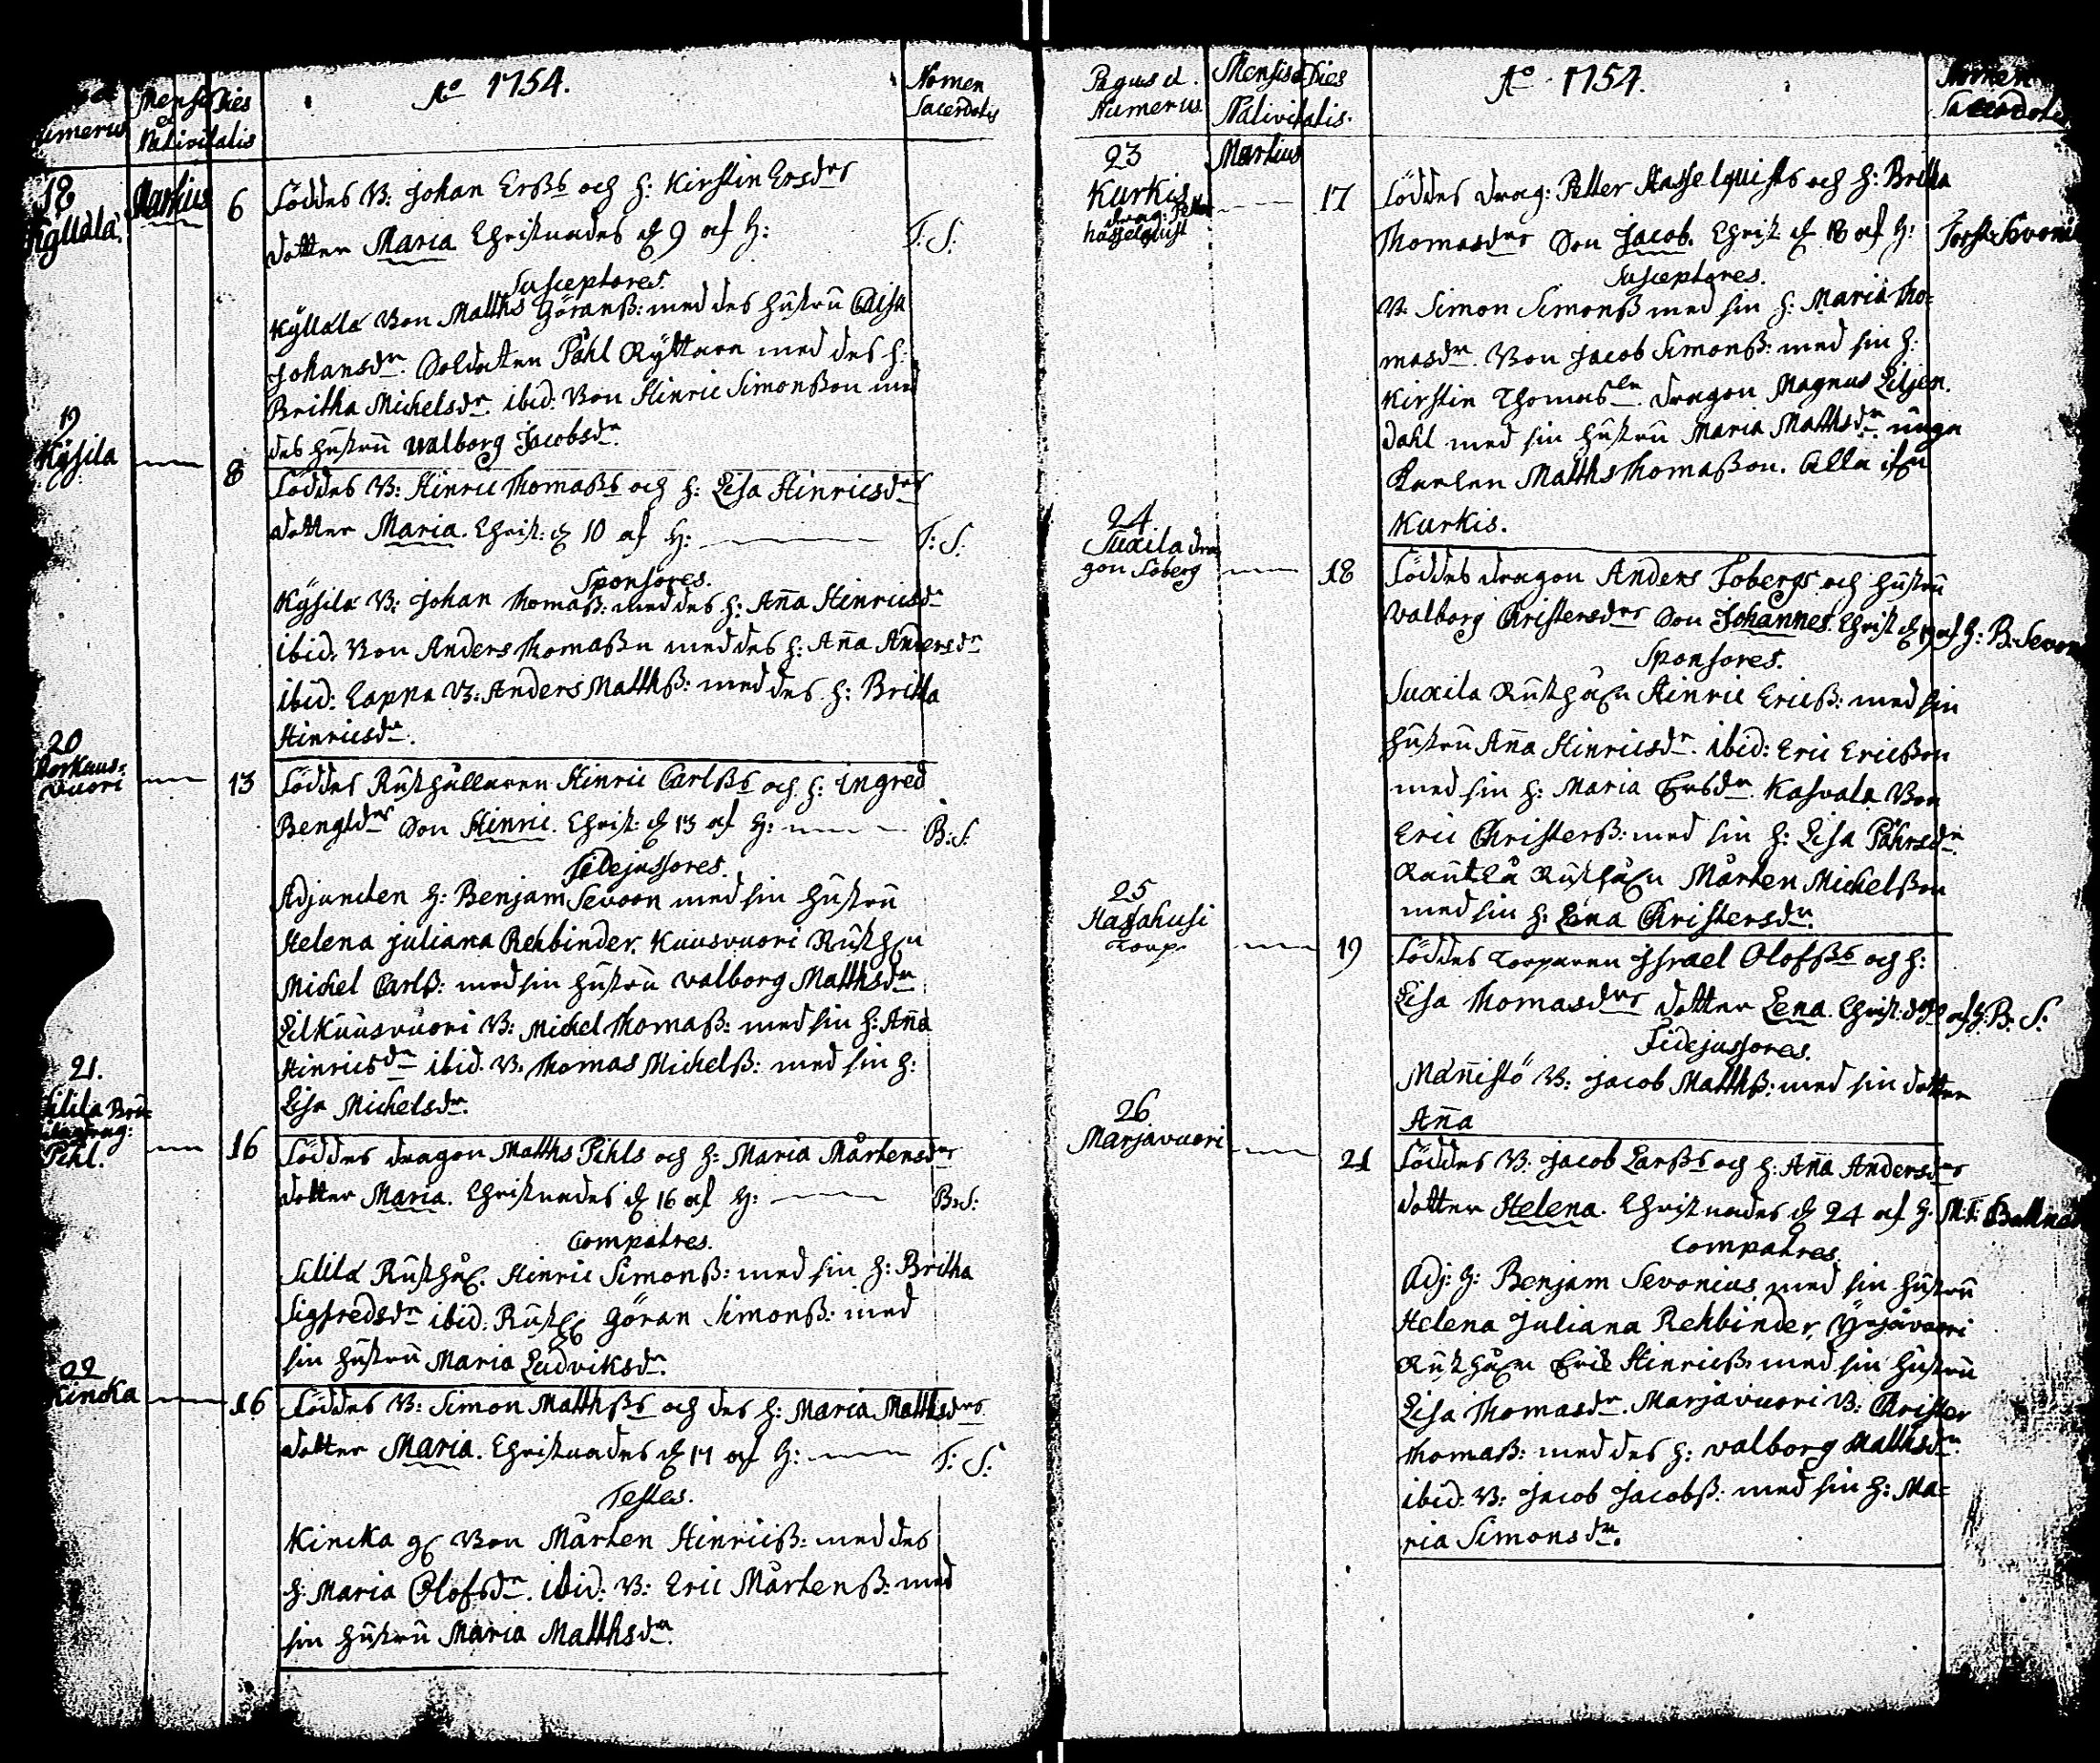 Mensis Dies
Numerus
et
Nativitatis
Ao 1754.
Nomen
Sacerdotis
18
Kyllälä
Martius
6
Föddes B: Johan Erßs och h: Kirstin Ersdrs
dotter Maria Christnades d 9 af H:
F: S:
Susceptores.
Kyllälä Bon Matths Göranß: med des hustru Caisa
Johansdr. Soldaten Påhl Ryttare med des h:
Britha Michelsdr. ibid: Bon Hinric Simonßon med
des hustru Walborg Jacobsdr.
19
Kysilä
8
Föddes B: Hinric Thomaßs och h: Lisa Hinricsdrs
dotter Maria. Christ: d 10 af H:
F: S:
Sponsores.
Kysilä B: Johan Thomaß: med des h: Aña Hinricsdr
ibid. Bon Anders Thomaßn med des h: Aña Andersdr
ibid: Lapna B: Anders Matthß: med des h: Britta
Hinricsdr.
20
Korkaus=
vuori
13
Föddes Rusthållaren Hinric Carlßs och h: Ingred
Bengtdrs Son Hinric. Christ: d 13 af H:
B: S:
Fidejussores.
Adjuncten H: Benjam Sevoon med sin hustru
Helena Juliana Rehbinder. Kuusvuori Rusthn
Michel Carlß: med sin hustru Valborg Matthsdr
Lilkuusvuori B: Michel Thomaß: med sin h: Aña
Hinricsdr ibid. B. Thomas Michelß: med sin h:
Lisa Michelsdr.
21.
drag:
Pihl.
16
Föddes dragon Matths Pihls och h: Maria Mårtensdrs
dotter Maria. Christnades d 16 af H:
B: S:
Compatres.
Sililä Rusthåll. Hinric Simonß: med sin h: Britha
Sigfredsdr ibid: Rusth Göran Simonß: med
sin hustru Maria Ludviksdr.
22
Kincka
16
Föddes B: Simon Matthßs och des h: Maria Matthsdrs
dotter Maria. Christnades d 17 af H:
F: S:
Testes.
Kincka Bon Mårten Hinricß: med des
h: Maria Olofsdr. ibid: B: Eric Mårtenß: med
sin hustru Maria Matthsdr.
Pagus et
Numerus
Mensis et Dies
Nativitatis.
Ao 1754.
Nomen
Sacerdotis
23
Kurkis
drag: Petter
hasselquist
Martius
17
Föddes drag: Petter Hasselquists och h: Britta
Thomasdrs Son Jacob. Christ: d 18 af H:
Susceptores.
B. Simon Simonß med sin h: Maria Tho=
masdr. Bon Jacob Simonß: med sin h:
Kirstin Thomasdr. dragon Magnus Liljen.
dahl med sin hustru Maria Matthsdr. unga
Karlen Matths Thomaßon. Alla ifrn
Kurkis.
24
Suxila dra
gon Foberg
18
Föddes dragon Anders Fobergs och hustru
Valborg Christersdrs Son Johannes. Christ d 19 af H: B. Sevon
Sponsores.
Suxila Rusthålln Hinric Ericß: med sin
hustru Aña Hinricsdr. ibid: Eric Ericßon
med sin h: Maria Ersdr. Kasvala Bon
Eric Christerß: med sin h: Lisa Påhrsdr.
Rusthålln Mårten Michelßon
med sin h: Lena Christersdr.
25
Hassahusi
Torp
19
Föddes Torparen Israel Olofßs och h:
Lisa Thomasdrs dotter Lena. Christ: af H: B: S:
Fidejussores.
Mäñistö B: Jacob Matthß: med sin dotter
Aña
26
Marjavuori
21
Föddes B. Jacob Larßs och h: Aña Andersdrs
dotter Helena. Christnades d 24 af H.
Compatres.
Adj: H: Benjam Sevonius med sin hustru
Helena Juliana Rehbinder, Yrjävuori
Rusthålln Eric Hinricß: med sin hustru
Lisa Thomasdr. Marjavuori B: Christer
Thomaß: med des h: Valborg Matthsdr.
ibid: B: Jacob Jacobß: med sin h: Ma=
ria Simonsdr.